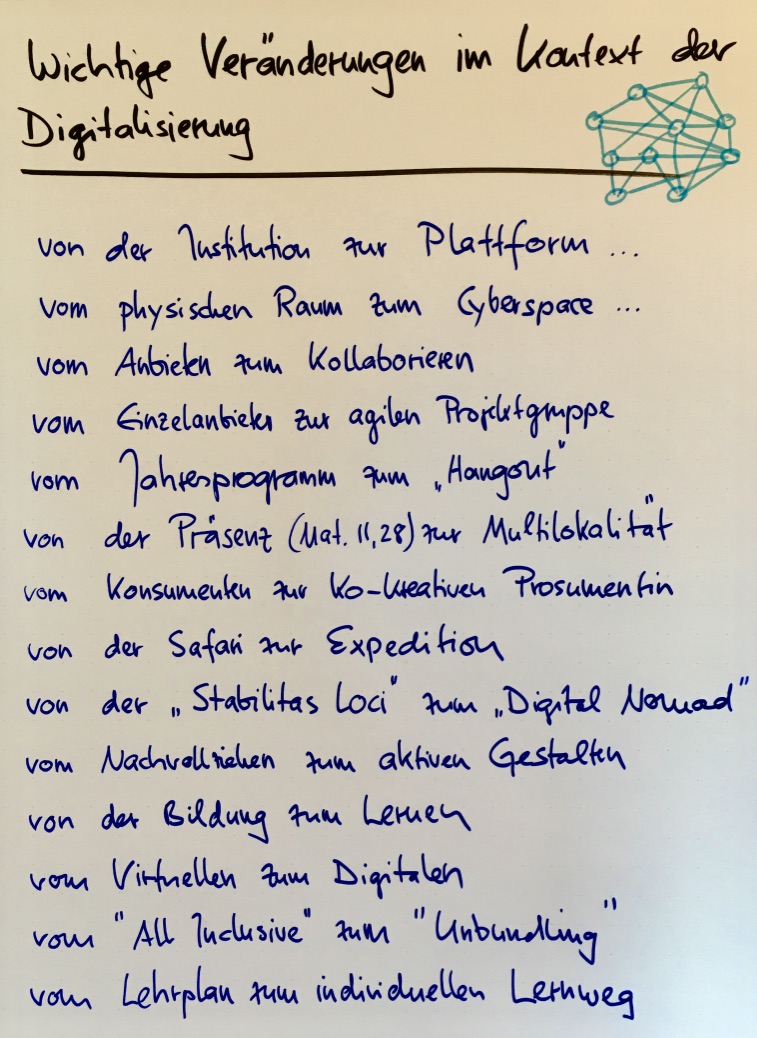 Wichtige Veränderungen im Kontext der
Digitalisierung
von der Institution zur Plattform ...
vom physischen Raum zum Cyberspace ...
vom Anbieten zum Kollaborieren
vom Einzelanbieter zur agilen Projektgruppe
vom Jahresprogramm zum „Hangout"
von der Präsenz (Mat. 11,28) zur Multilokalität
vom Konsumenten zur Ko-kreativen Prosumentin
von der Safari zur Expedition
von der „Stabilitas Loci" zum „Digital Nomad"
vom Nachvollziehen zum aktiven Gestalten
von der Bildung zum Lernen
vom Virtuellen zum Digitalen
vom "All Inclusive" zum "Unbundling"
vom Lehrplan zum individuellen Lernweg